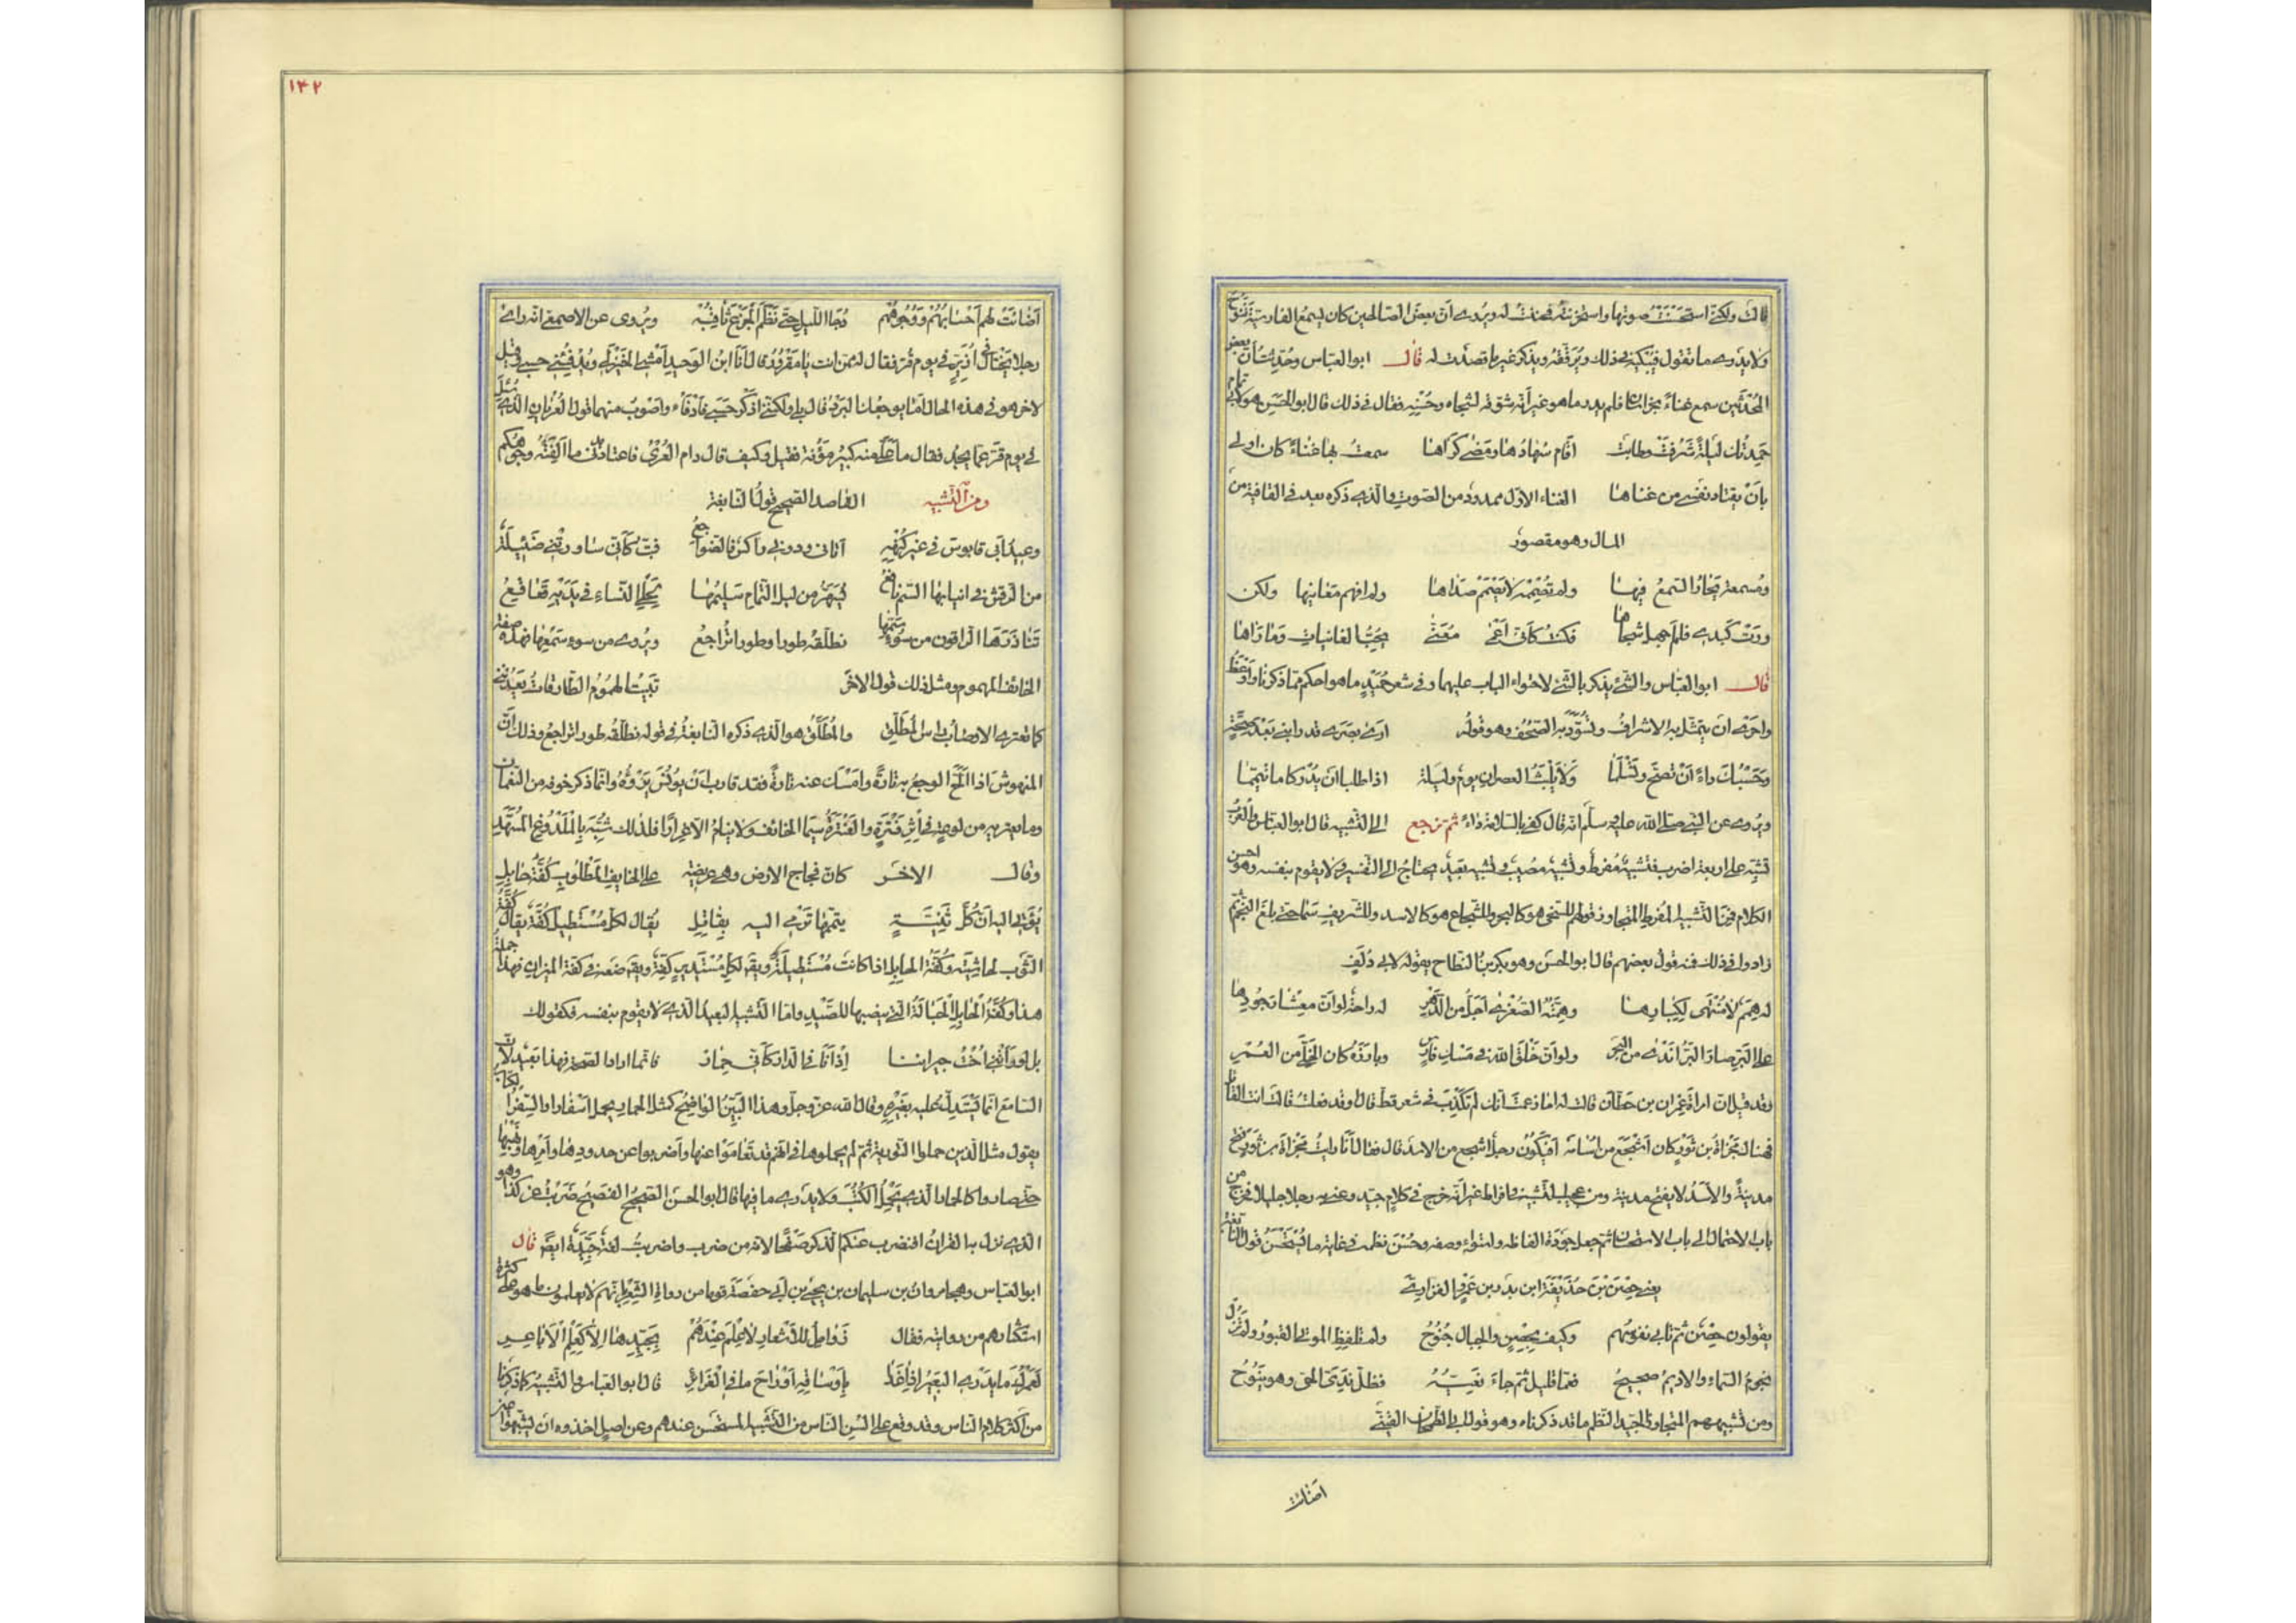 قال ولكني استحسنت صوتها واستحزنته فحننت له ويروى ان بعض الصالحين كان يسمع الفارسية تنوح
ولا يدرى ما تقول فيبكيه ذلك ويرققه ويذكر غير ما قصدت له قال ابو العباس وحدثت ان بعض
المحدثين سمع غناء بخراسان فلم يدر ما هو غير انه شوقه لشجاه وحسنه فقال فى ذلك قال ابو الحسن هو لابى تمام
حمدتك ليلة شرفت وطابت اقام سهادها ومضى كراها سمعت بها غناء كان اولى
بان يقتاد نفسى من غناها الغناء الاول ممدود من الصوت والذى ذكره بعد فى القافية من
المال وهو مقصور
ومسمعة يحار السمع فيها ولم تصممه لا يصمم صداها ولم افهم معانيها ولكن
ورت كبدى فلم اجهل شجاها فكنت كانى اعمى معنى يحب الغانيات وما راها
قال ابو العباس والشئ يذكر بالشئ لاحتواء الباب عليهما وفى شعر حميد ما هو احكم مما ذكرنا واوعظ
واحرى ان يتمثل به الاشراف وتسود به الصحف وهو قوله ارى بصرى قد رابنى بعد صحة
وحسبك داء ان تصح وتسلما ولا يلبث العصران يوم وليلة اذا طلبا ان يدركا ما تيمما
ويروى عن النبى صلى الله عليه وسلم انه قال كفى بالسلامة داء ثم نرجع الى التشبيه قال ابو العباس والعرب
تشبه على اربعة اضرب فتشبيه مفرط وتشبيه مصيب وتشبيه مقارب وتشبيه بعيد يحتاج الى التفسير ولا يقوم بنفسه وهو اخشن
الكلام فمن التشبيه المفرط المتجاوز قولهم للسخى هو كالبحر وللشجاع هو كالاسد وللشريف سما حتى بلغ النجم ثم
زادوا فى ذلك فمنه قول بعضهم قال ابو الحسن وهو بكر بن النطاح يقوله لابى دلف
له همم لا منتهى لكبارها وهمته الصغرى اجل من الدهر له راحة لو ان معشار جودها
على البر صار البر اندى من البحر ولو ان خلق الله فى مسك فارس وبارزه كان الخلى من العمر
وقد قيل ان امراة عمران بن حطان قالت له اما زعمت انك لم تكذب فى شعر قط قال او قد فعلت قالت انت القائل
فهناك مجزاة بن ثور كان اشجع من اسامة افيكون رجل اشجع من الاسد قال فقال انا رايت مجزاة بن ثور فتح
مدينة والاسد لا يفتح مدينة ومن عجيب التشبيه فى افراط غير انه خرج فى كلام جيد وعنى به رجلا جليلا فخرج من
باب الاحتمال الى باب الاستحسان ثم جعل جودة الفاظه واستواء وصفه وحسن نظمه فى غاية ما يستحسن قول النابغة
يعنى حصن بن حذيفة ابن بدر بن عمرو الفزارى
يقولون حصن ثم تابى نفوسهم وكيف بحصن والجبال جنوح ولم تلفظ الموتى القبور ولم تزل
نجوم السماء والاديم صحيح فعما قليل ثم جاء نعيه فظل ندى الحى وهو ينوح
ومن تشبيههم المتجاوز الجيد النظم ما قد ذكرناه وهو قول ابى الطمحان القينى
اضائت
١٤٢
اضائت لهم احسابهم ووجوههم دجا الليل حتى نظم الجزع ثاقبه ويروى عن الاصمعى انه راى
رجلا يختال فى ازير فى يوم قر فقال له ممن انت يا مقرور قال انا ابن الوحيد امشى الخيزلى ويدفئنى حسبى وقيل
لاخر هو فى هذه الحال اما يوجعك البرد قال بلى ولكنى اذكر حسبى فادفاء واصوب منهما قول العريان الذى سئل
فى يوم قر عما يجد فقال ما على منه كبير مؤنة فقيل وكيف قال دام العرى فاعتاد بدنى ما الفته وجوهكم
ومن التشبيه القاصد الصحيح قول النابغة
وعيد ابى قابوس فى غير كنهه اتانى ودونى راكس فالضواجع فبت كانى ساورتنى ضئيلة
من الرقش فى انيابها السم ناقع يسهد من ليل التمام سليمها بحلى النساء فى يديه قعاقع
تناذرها الراقون من سوء سمها تطلقه طورا وطورا تراجع ويروى من سوء سمعها فهذه صفة
الخائف المهموم ومثل ذلك قول الاخر تبيت الهموم الطارقات يعدننى
كما تعترى الاوصاب راس المطلق والمطلق هو الذى ذكره النابغة فى قوله تطلقه طورا تراجع وذلك ان
المنهوش اذا الح الوجع به تارة وامسك عنه تارة فقد قارب ان يوئس برؤه وانما ذكر خوفه من النعمان
وما يعتريه من لوعة فى اثر فترة والفترة سيما الخائف ولا ينام الا غرارا فلذلك شبه بالملدوغ المسهد
وقال الاخر كان فجاج الارض وهى عريضة على الخايف المطلوب كفة حابل
يؤتى اليه ان كل ثنية تيممها ترمى اليه بقاتل يقال لكل مستطيل كفة يقال كفة
الثوب لحاشيته وكفة الحابل اذا كانت مستطيلة ويقال لكل مستدير كفة ويقال ضعه فى كفة الميزان فهذا جملة
هذا وكفة الحابل الحبالة التى ينصبها للصيد واما التشبيه البعيد الذى لا يقوم بنفسه فكقولك
بل لو راتنى اخت جيراننا اذ انا فى الدار كانى حمار فانما اراد الصحة فهذا بعيد لان
السامع انما يستدل عليه بغيره وقال الله عز وجل وهذا البين الواضح كمثل الحمار يحمل اسفارا والسفر الكتاب
يقول مثل الذين حملوا التورية ثم لم يحملوها فى انهم قد تعاموا عنها واضربوا عن حدودها وامرها ونهيها
حتى صاروا كالحمار الذى يحمل الكتب ولا يدرى ما فيها قال ابو الحسن الصحيح الفصيح ضربت عن كذا وهو
الذى نزل به القران افنضرب عنكم الذكر صفحا لانه من ضرب واضربت لغة جيدة ايضا قال
ابو العباس وهجا مروان بن سليمان بن يحيى بن ابى حفصة قوما من رواة الشعر بانهم لا يعلمون ما هو على كثرة
استكثارهم من روايته فقال زوامل للاشعار لا علم عندهم بجيدها الا كعلم الاباعر
لعمرك ما يدرى البعير اذا غدا باوساقه او راح ما فى الغرائر قال ابو العباس والتشبيه كما ذكرنا
من اكثر كلام الناس وقد وقع على السن الناس من التشبيه المستحسن عندهم وعن اصل اخذوه ان يشبهوا عين